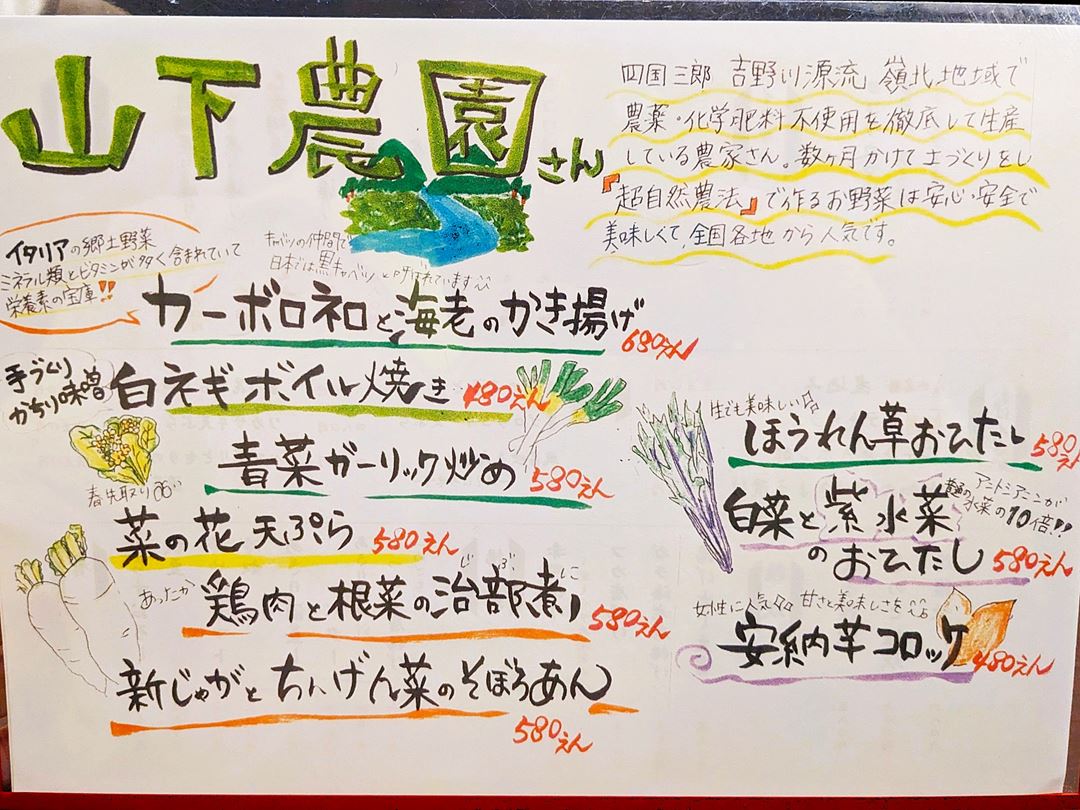 山下農園さん
四国三郎 吉野川源流 嶺北地域で
農薬・化学肥料不使用を徹底して生産
している農家さん。数ヶ月かけて土づくりをし
『超自然農法』で作るお野菜は安心・安全で
美味しくて、全国各地から人気です。
イタリアの郷土野菜
ミネラル類とビタミンが多く含まれていて
栄養素の宝庫!!
キャベツの仲間で
日本では黒キャベツと呼ばれています
カーボロネロと海老のかき揚げ
680えん
手づくり
かちり味噌
白ネギボイル焼き 480えん
青菜ガーリック炒め 580えん
春先取り
菜の花天ぷら 580えん
あったか
鶏肉と根菜の治部煮 580えん
じぶに
新じゃがとちぢげん菜のそぼろあん
580えん
生でも美味しい
ほうれん草おひたし 580えん
白菜と紫水菜
のおひたし 580えん
アントシアニンが
水菜の10倍!!
女性に人気 甘さと美味しさを
安納芋コロッケ 480えん